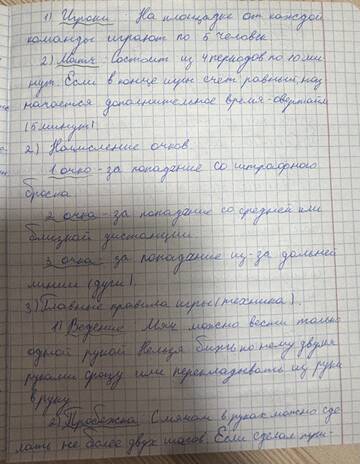 1) Игроки: На площадке от каждой
команды играют по 5 человек.
2) Матч: состоит из 4 периодов по 10 ми
нут. Если в конце игры счет равный, наз
начается дополнительное время - овертайм
(5 минут)
2) Начисление очков
1 очко - за попадание со штрафного
броска
2 очка - за попадание со средней или
близкой дистанции
3 очка - за попадание из-за дальней
линии (дуги).
3) Главные правила игры (техника).
1) Ведение Мяч можно вести только
одной рукой Нельзя бить по нему двумя
руками сразу или перекладывать из руки
в руку
2) Пробежка С мячом в руках можно сде
лать не более двух шагов. Если сделал